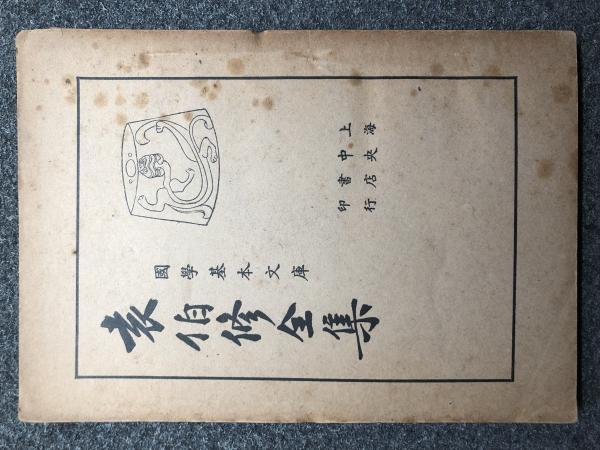 國學基本文庫
袁伯修全集
上海
中央
書店
印行